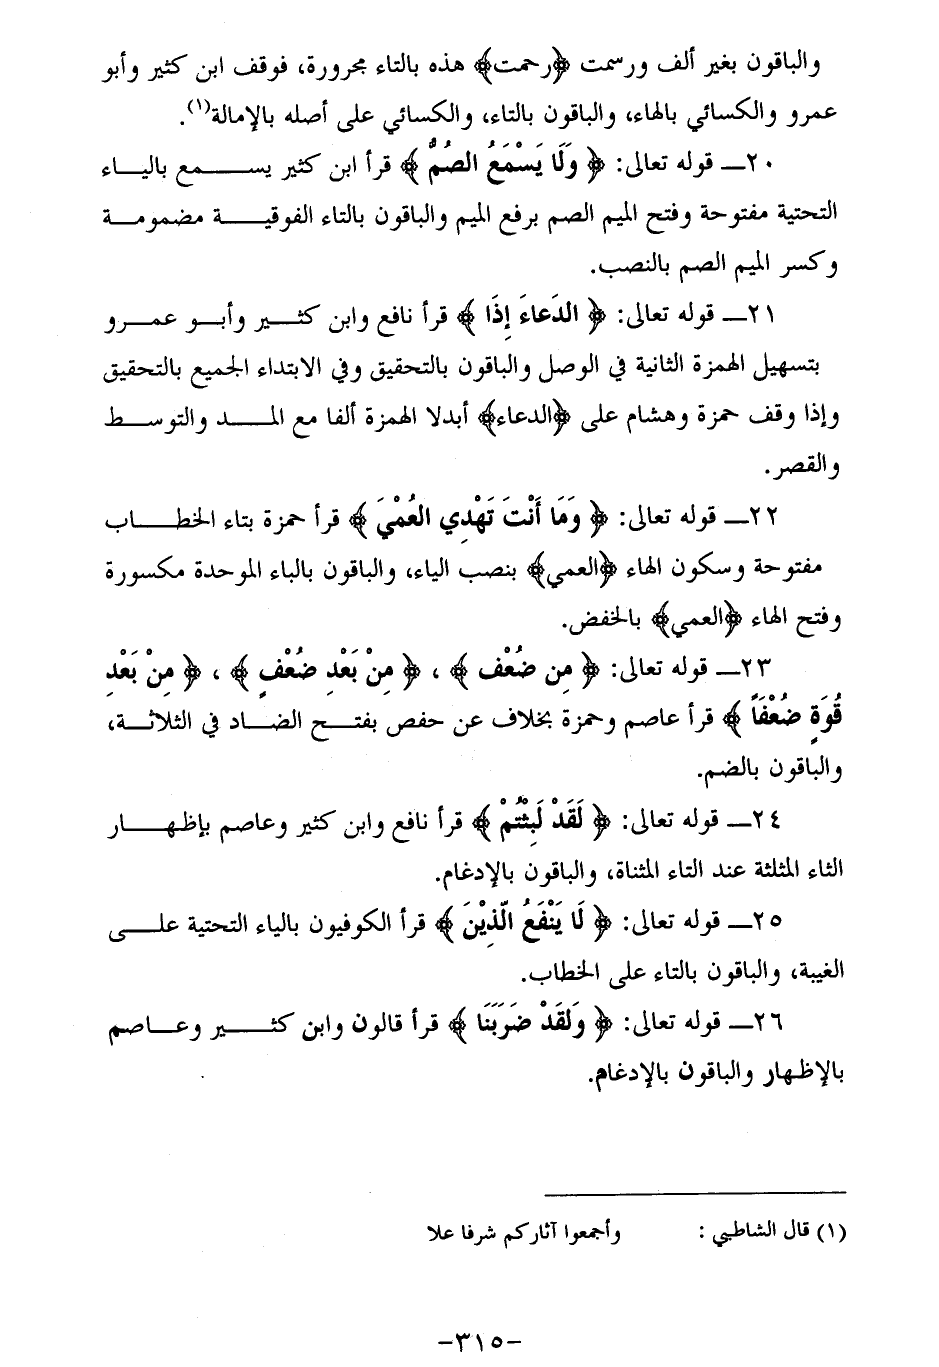 والباقون بغير ألف ورسمت ﴿رحمت﴾ هذه بالتاء مجرورة، فوقف ابن كثير وأبو
عمرو والكسائي بالهاء، والباقون بالتاء، والكسائي على أصله بالإمالة(١).
٢٠ــ قوله تعالى: ﴿ وَلَا يَسْمَعُ الصُمُّ ﴾ قرأ ابن كثير يســـمع باليــاء
التحتية مفتوحة وفتح الميم الصم برفع الميم والباقون بالتاء الفوقيـــة مضمومـــة
وكسر الميم الصم بالنصب.
٢١ــ قوله تعالى: ﴿ الدَعاءَ إِذَا ﴾ قرأ نافع وابن كثـــير وأبـــو عمـــرو
بتسهيل الهمزة الثانية في الوصل والباقون بالتحقيق وفي الابتداء الجميع بالتحقيق
وإذا وقف حمزة وهشام على ﴿الدعاء﴾ أبدلا الهمزة ألفا مع المـــد والتوســط
والقصر.
٢٢ــ قوله تعالى: ﴿ وَمَا أَنْتَ تَهْدِي العُمْيَ ﴾ قرأ حمزة بتاء الخطـــاب
مفتوحة وسكون الهاء ﴿العمي﴾ بنصب الياء، والباقون بالباء الموحدة مكسورة
وفتح الهاء ﴿العمي﴾ بالخفض.
٢٣ــ قوله تعالى: ﴿ مِن ضُعْف ﴾ ، ﴿ مِنْ بَعْدِ ضُعْفٍ ﴾ ، ﴿ مِنْ بَعْدِ
قُوَةٍ ضُعْفَاً ﴾ قرأ عاصم وحمزة بخلاف عن حفص بفتـــح الضـاد في الثلاثــة،
والباقون بالضم.
٢٤ــ قوله تعالى: ﴿ لَقَدْ لَبِثْتُمْ ﴾ قرأ نافع وابن كثير وعاصم بإظهـــار
الثاء المثلثة عند التاء المثناة، والباقون بالإدغام.
٢٥ــ قوله تعالى: ﴿ لَا يَنْفَعُ الّذِيْنَ ﴾ قرأ الكوفيون بالياء التحتية علـــى
الغيبة، والباقون بالتاء على الخطاب.
٢٦ــ قوله تعالى: ﴿ وَلَقَدْ ضَرَبَنَا ﴾ قرأ قالون وابن كثـــير وعـــاصم
بالإظهار والباقون بالإدغام.
(١) قال الشاطبي : وأجمعوا آثاركم شرفا علا
-٣١٥-